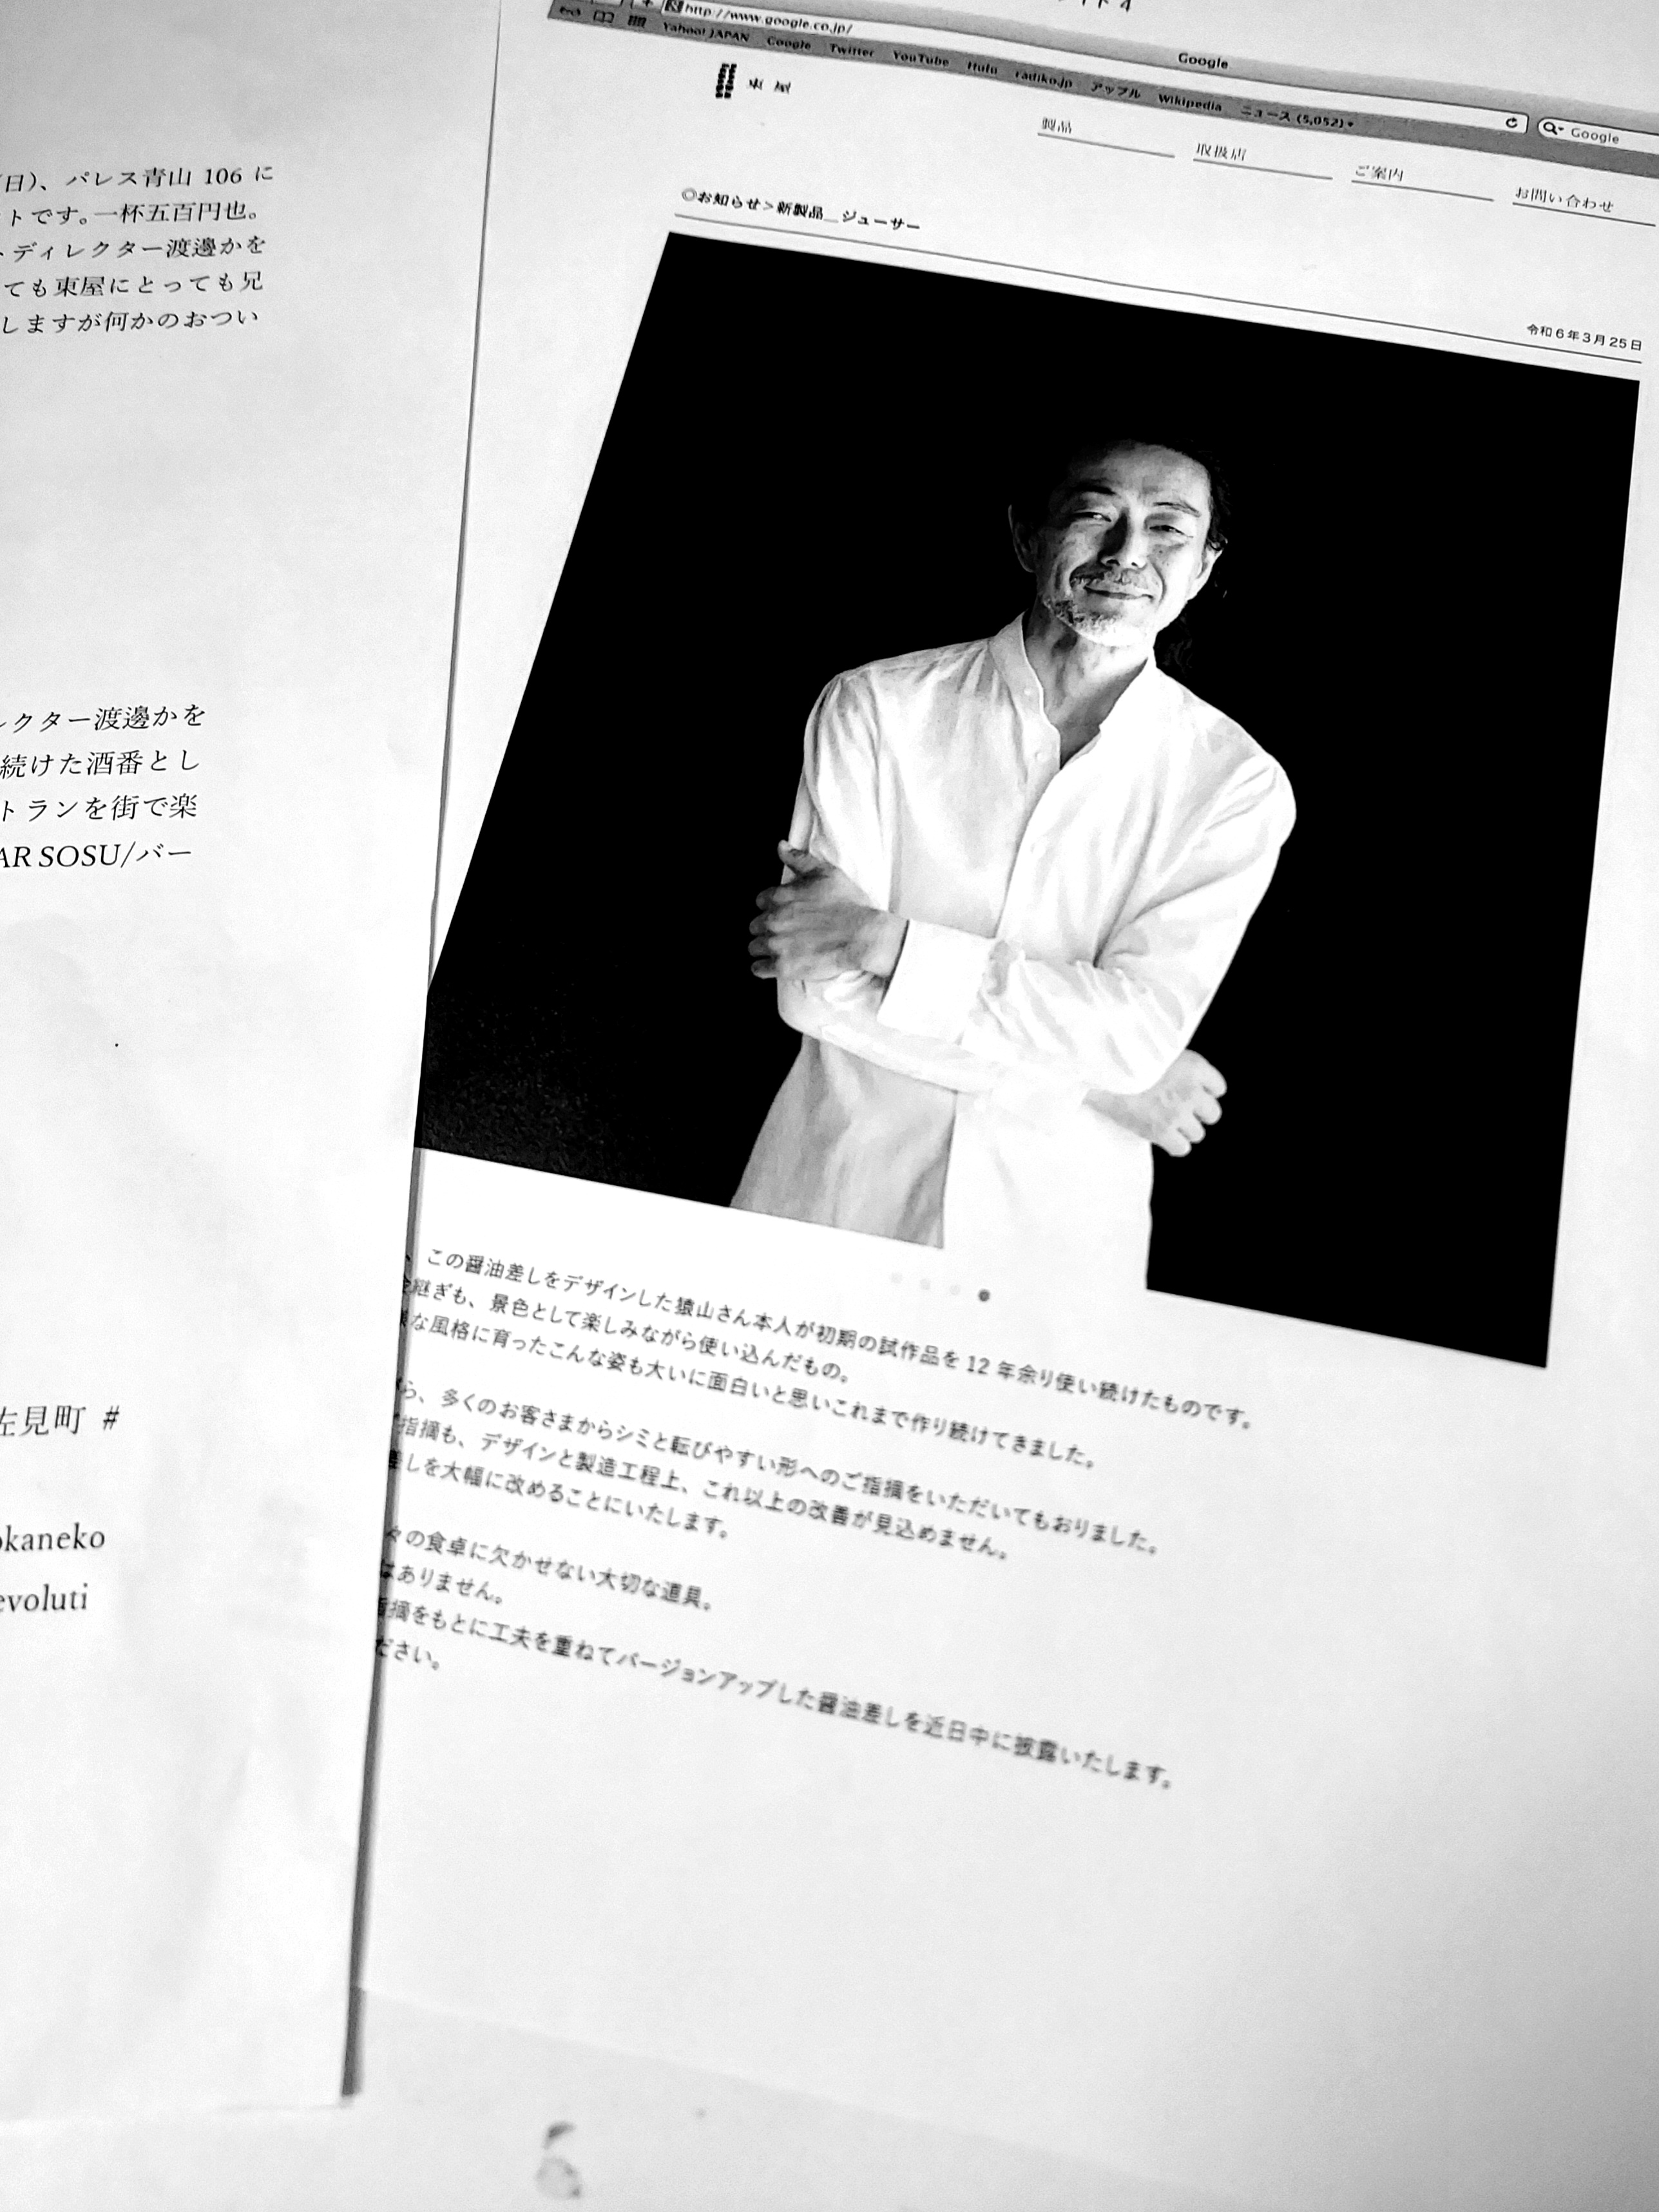 日)、パレス青山 106 に
トです。一杯五百円也。
ディレクター渡邉かを
ても東屋にとっても兄
しますが何かのおつい
レクター渡邉かを
続けた酒番とし
トランを街で楽
AR SOSU/バー
左見町 #
okaneko
evoluti
Google
http://www.google.co.jp/
Google
Yahoo! JAPAN Google Twitter YouTube Hulu radiko.jp アップル Wikipedia ニュース (5,052)
東屋
製品
取扱店
ご案内
お問い合わせ
◎お知らせ>新製品＿ジューサー
令和6年3月25日
この醤油差しをデザインした猿山さん本人が初期の試作品を 12 年余り使い続けたものです。
継ぎも、景色として楽しみながら使い込んだもの。
な風格に育ったこんな姿も大いに面白いと思いこれまで作り続けてきました。
ら、多くのお客さまからシミと転びやすい形へのご指摘をいただいてもおりました。
指摘も、デザインと製造工程上、これ以上の改善が見込めません。
差しを大幅に改めることにいたします。
々の食卓に欠かせない大切な道具。
はありません。
指摘をもとに工夫を重ねてバージョンアップした醤油差しを近日中に披露いたします。
ださい。